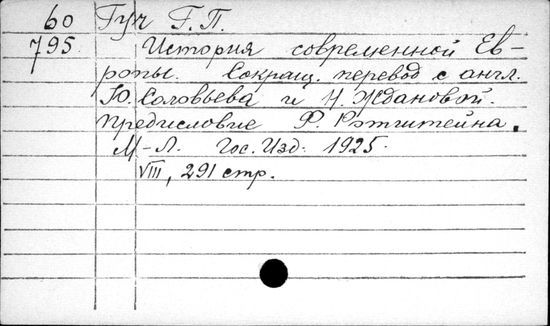 60 Гуч Г.П.
795. История современной Ев-
ропы. Сокращ. перевод с англ.
Ю. Соловьева и Н. Ждановой.
Предисловие Ф. Ротштейна.
М-Л. Гос. Изд. 1925.
VIII, 291 стр.